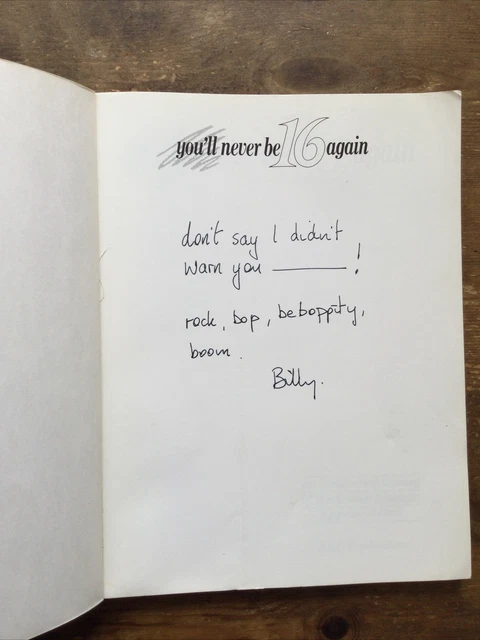 you'll never be 16 again
don't say I didn't
warn you ———!
rock, bop, beboppity,
boom.
Billy.